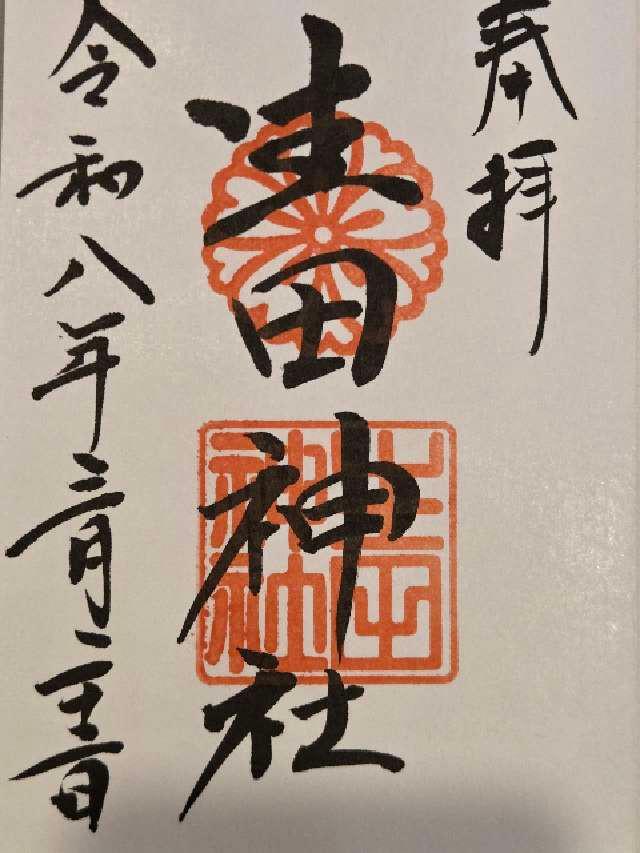 奉拝
生田神社
生田神社
令和八年三月二十三日